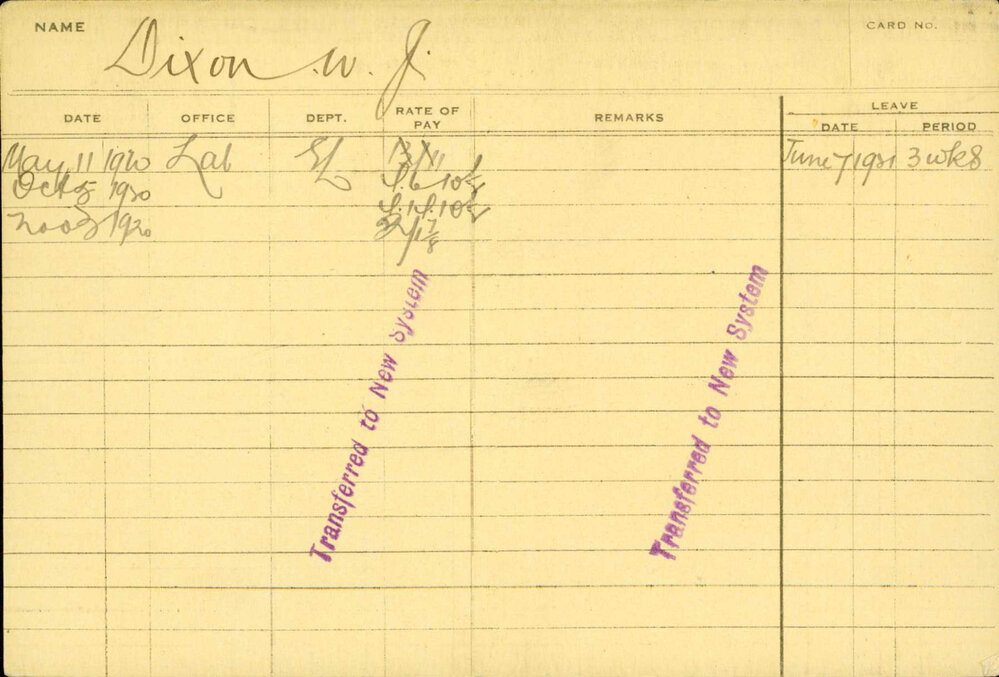 NAME Dixon W. J. CARD No.
DATE OFFICE DEPT. RATE OF PAY REMARKS LEAVE
DATE PERIOD
May 11 1920 Lab EL June 7 1921 3 wks
Oct 5 1920
Nov 3 1920
Transferred to New System
Transferred to New System